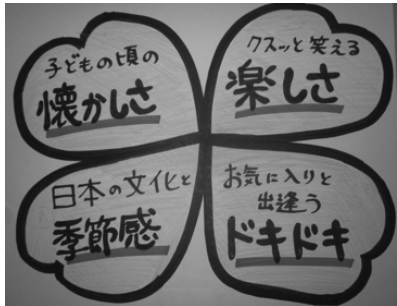 子どもの頃の
懐かしさ
クスッと笑える
楽しさ
日本の文化と
季節感
お気に入りと
出逢う
ドキドキ